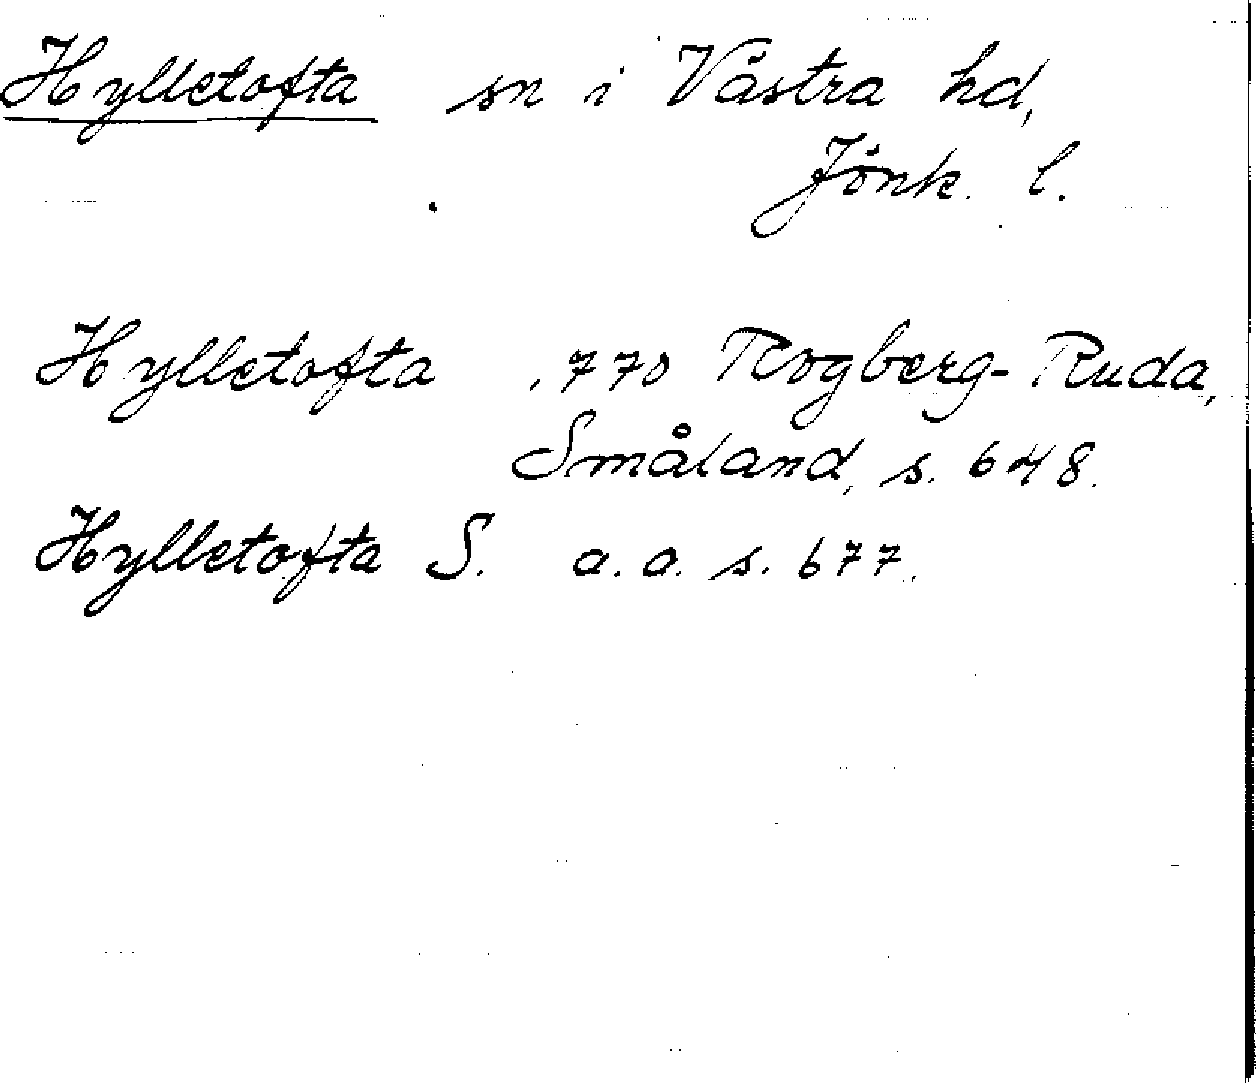 Hylletofta sn i Västra hd,
Jönk. l.
Hylletofta .770 Rogberg-Ruda,
Småland, s. 648.
Hylletofta S. a.a. s. 677.